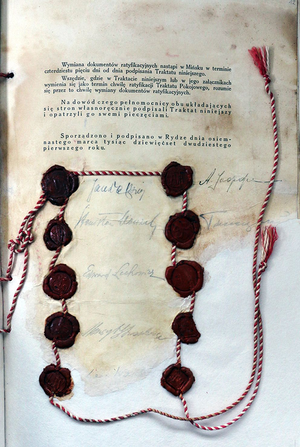 Wymiana dokumentów ratyfikacyjnych nastąpi w Mińsku w terminie
czterdziestu pięciu dni od dnia podpisania Traktatu niniejszego.
Wszędzie, gdzie w Traktacie niniejszym lub w jego załącznikach
wymienia się jako termin chwilę ratyfikacji Traktatu Pokojowego, rozumie
się przez to chwilę wymiany dokumentów ratyfikacyjnych.
Na dowód czego pełnomocnicy obu układających
się stron własnoręcznie podpisali Traktat niniejszy
i opatrzyli go swemi pieczęciami.
Sporządzono i podpisano w Rydze dnia osiem-
nastego marca tysiąc dziewięćset dwudziestego
pierwszego roku.